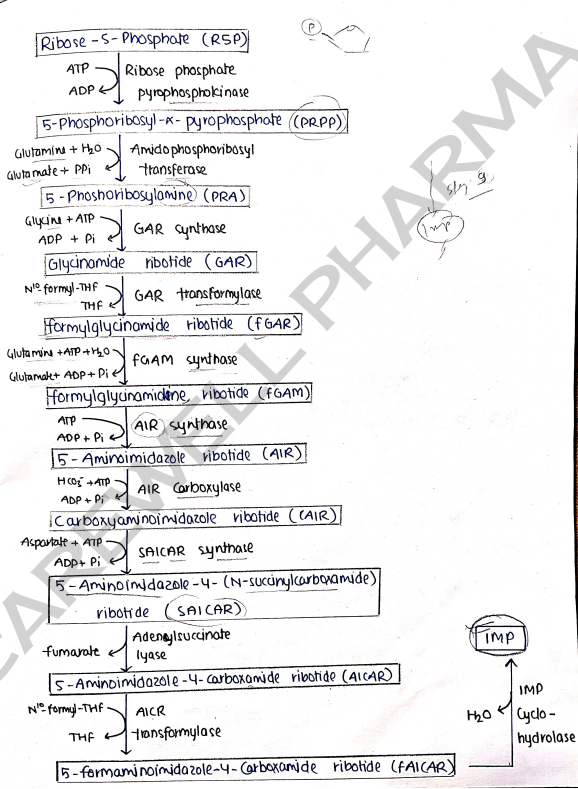 Ribose-5-Phosphate (R5P)
P
ATP
ADP
Ribose phosphate
pyrophosphokinase
5-Phosphoribosyl-α-pyrophosphate (PRPP)
Glutamine + H2O
Glutamate + PPi
Amidophosphoribosyl
transferase
5-Phoshoribosylamine (PRA)
Glycine + ATP
ADP + Pi
GAR synthase
Glycinamide ribotide (GAR)
N10 formyl-THF
THF
GAR transformylase
formylglycinamide ribotide (fGAR)
Glutamine +ATP+H2O
Glutamate+ ADP+Pi
fGAM synthase
formylglycinamidine ribotide (fGAM)
ATP
ADP+Pi
AIR synthase
5-Aminoimidazole ribotide (AIR)
HCO3- +ATP
ADP+Pi
AIR Carboxylase
Carboxyaminoimidazole ribotide (CAIR)
Aspartate + ATP
ADP+ Pi
SAICAR synthase
5-Aminoimidazole-4-(N-succinylcarboxamide)
ribotide (SAICAR)
fumarate
Adenylsuccinate
lyase
5-Aminoimidazole-4-carboxamide ribotide (AICAR)
N10-formyl-THF
THF
AICR
transformylase
5-formaminoimidazole-4-Carboxamide ribotide (fAICAR)
IMP
H2O
IMP
Cyclo-
hydrolase
Imp
CAREWELL PHARMA